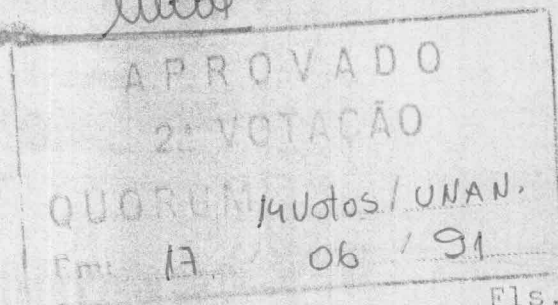 APROVADO
2ª VOTAÇÃO
QUORUM 14 Votos / UNAN.
Em: 17 / 06 / 91
Fls.